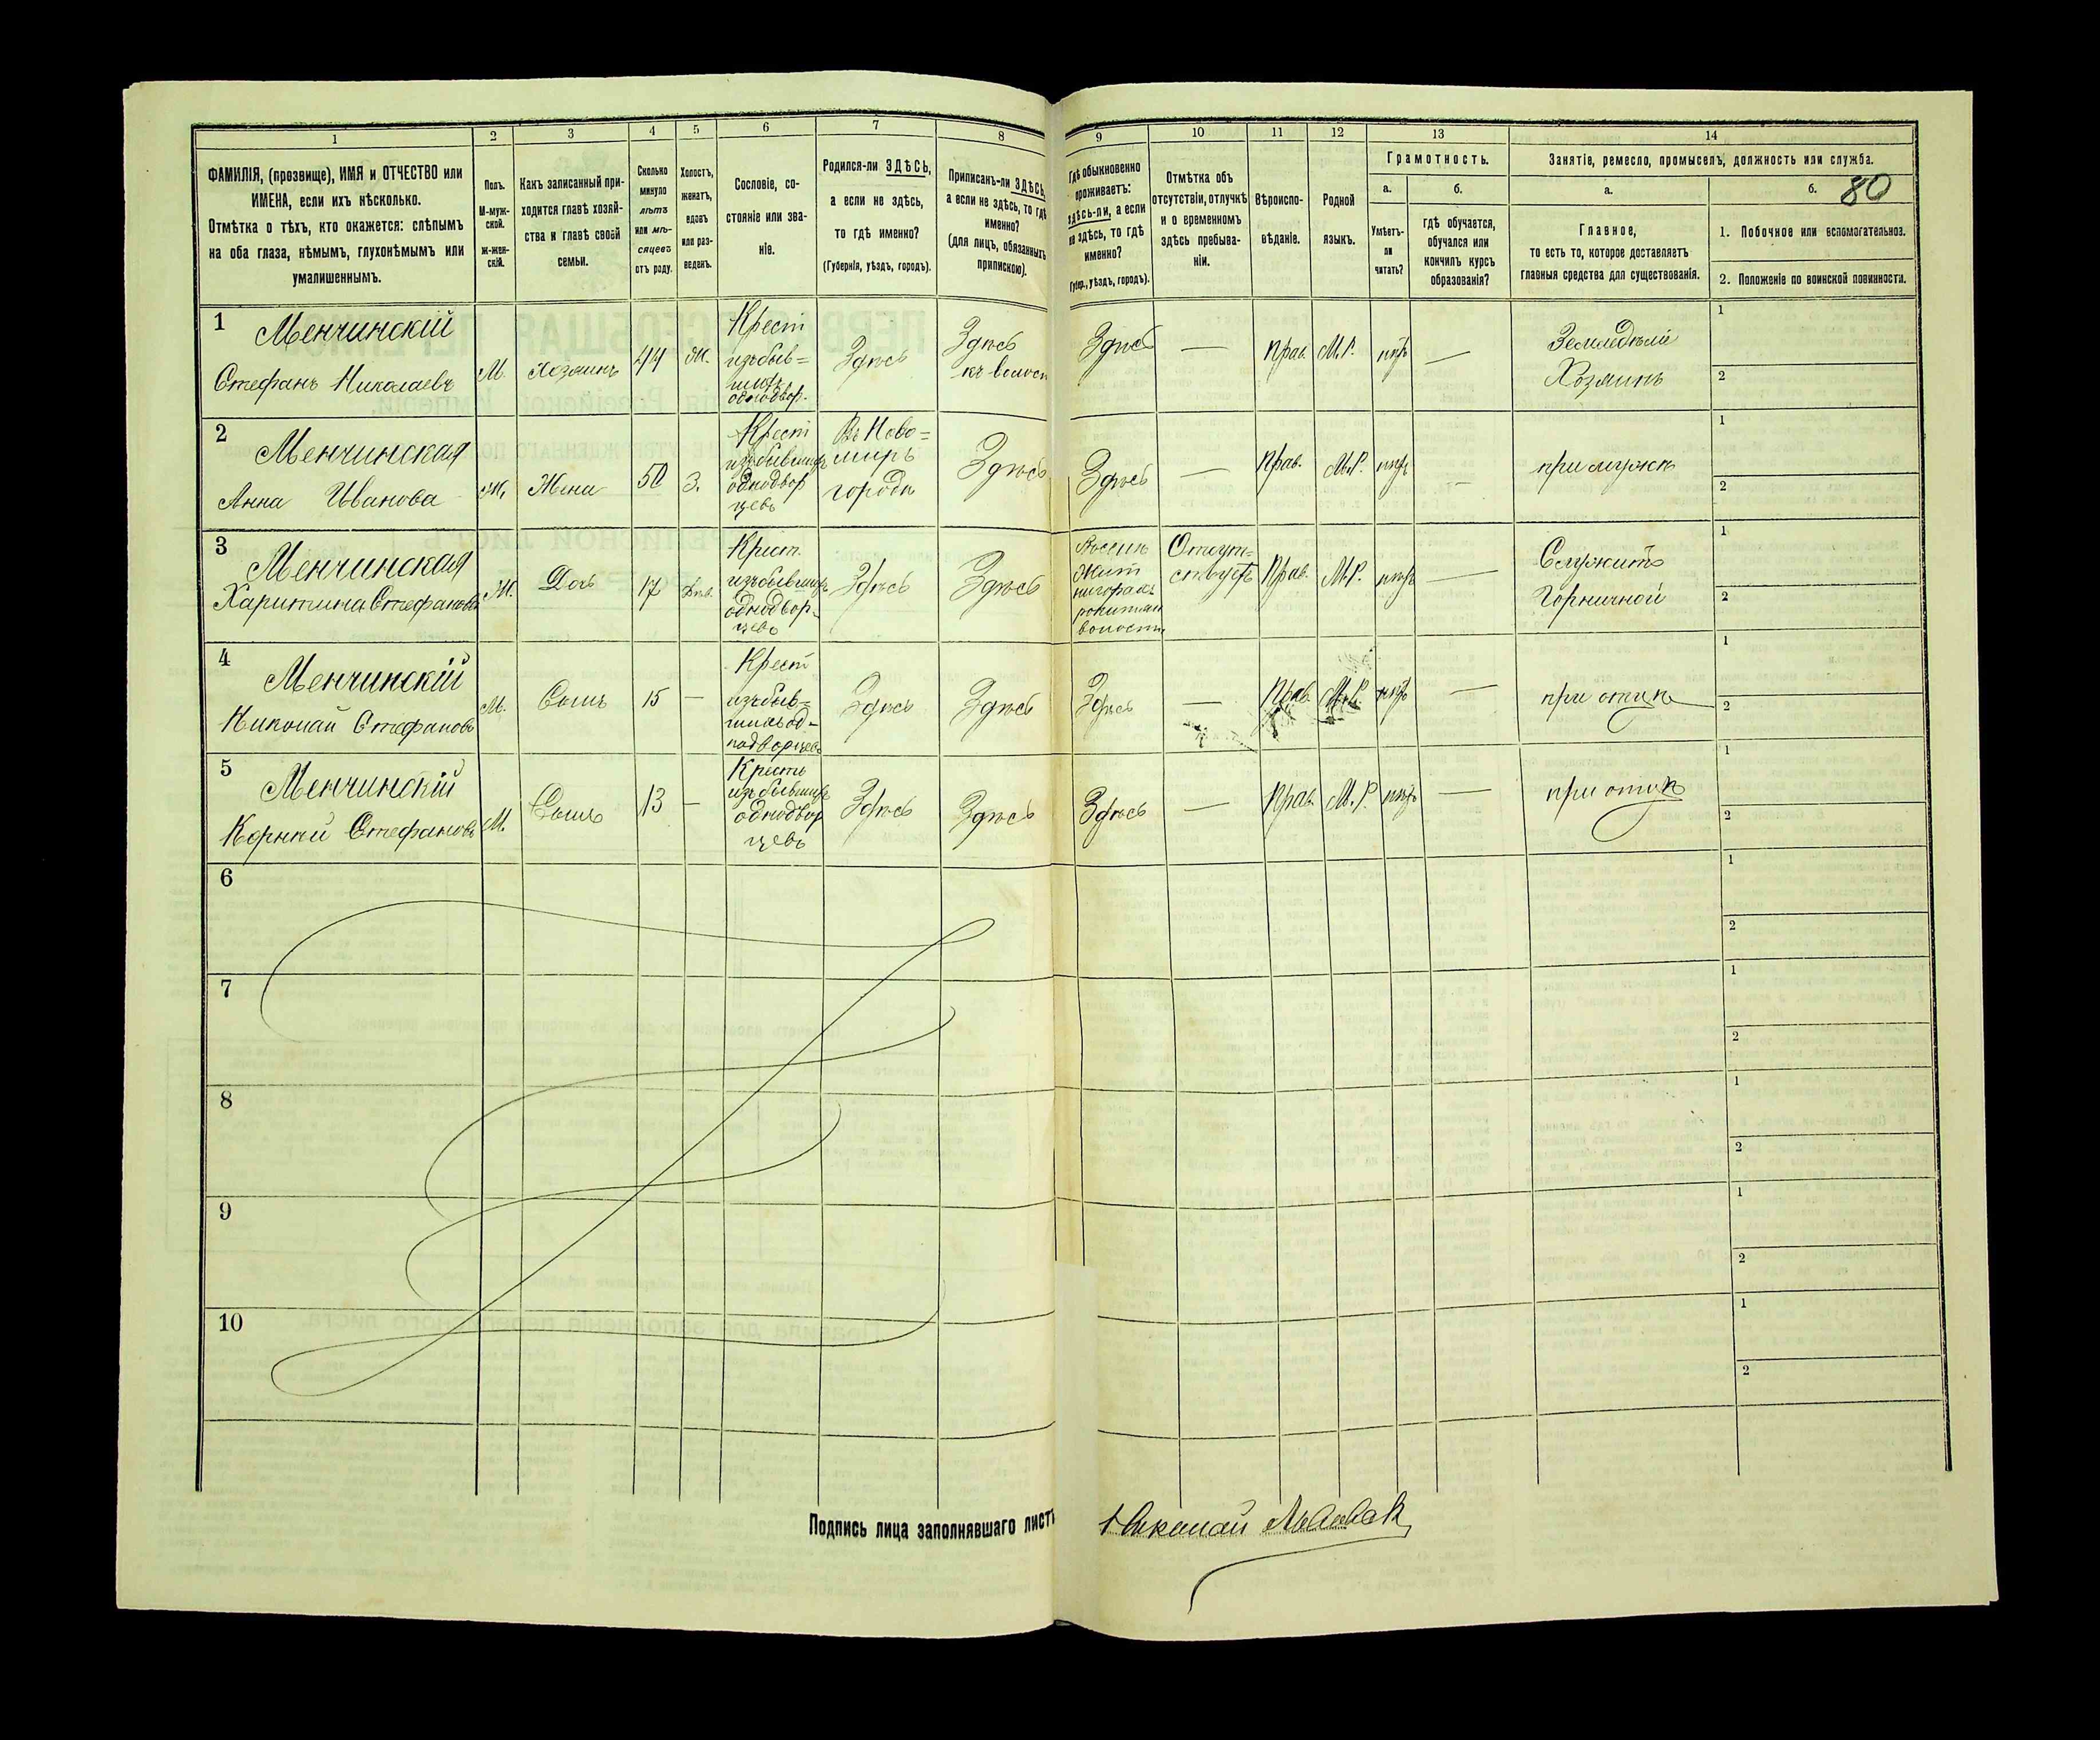 1 2 3 4 5 6 7 8 9 10 11 12 13 14
80
ФАМИЛІЯ, (прозвище), ИМЯ и ОТЧЕСТВО или
ИМЕНА, если ихъ нѣсколько.
Отмѣтка о тѣхъ, кто окажется: слѣпымъ
на оба глаза, нѣмымъ, глухонѣмымъ или
умалишеннымъ.
Полъ.
М-муж-
ской.
Ж-жен-
скій.
Какъ записанный при-
ходится главѣ хозяй-
ства и главѣ своей
семьи.
Сколько
минуло
лѣтъ
или мѣ-
сяцевъ
отъ роду.
Холостъ,
женатъ,
вдовъ
или раз-
веденъ.
Сословіе, со-
стояніе или зва-
ніе.
Родился-ли ЗДѢСЬ,
а если не здѣсь,
то гдѣ именно?
(Губернія, уѣздъ, городъ).
Приписанъ-ли ЗДѢСЬ,
а если не здѣсь, то гдѣ
именно?
(для лицъ, обязанныхъ
припискою).
Гдѣ обыкновенно
проживаетъ:
здѣсь-ли, а если
не здѣсь, то гдѣ
именно?
(Губер., уѣздъ, городъ).
Отмѣтка объ
отсутствіи, отлучкѣ
и о временномъ
здѣсь пребыва-
ніи.
Вѣроиспо-
вѣданіе.
Родной
языкъ.
Грамотность.
а. б.
Умѣетъ-
ли
читать?
гдѣ обучается,
обучался или
кончилъ курсъ
образованія?
Занятіе, ремесло, промыселъ, должность или служба.
а. б.
Главное,
то есть то, которое доставляетъ
главныя средства для существованія.
1. Побочное или вспомогательное.
2. Положеніе по воинской повинности.
1
Менчинскій
Стефанъ Николаевъ
М.
Хозяинъ
44
Ж.
Крест
изъ быв=
шихъ
однодвор.
Здѣсь
Здѣсь
Здѣсь
—
Прав.
М.Р.
нѣтъ
—
Земледѣліе
Хозяинъ
1
2
2
Менчинская
Анна Иванова
Ж.
Жена
50
З.
Крест
изъ бывшихъ
однодвор
цевъ
Въ Ново=
мирѣ
городѣ
Здѣсь
Здѣсь
—
Прав.
М.Р.
нѣтъ
—
при мужѣ
1
2
3
Менчинская
Харитина Стефанова
Ж.
Дочь
17
Дѣв.
Крест.
изъ бывшихъ
однодвор-
цевъ
Здѣсь
Здѣсь
волости
Отсут-
ствуетъ
Прав.
М.Р.
нѣтъ
—
Служитъ
Горничной
1
2
4
Менчинскій
Николай Стефановъ
М.
Сынъ
15
—
Крест
изъ быв=
шихъ од-
нодворцевъ
Здѣсь
Здѣсь
Здѣсь
—
Прав.
М.Р.
нѣтъ
—
при отцѣ
1
2
5
Менчинскій
Корній Стефановъ
М.
Сынъ
13
—
Крестъ
изъ бывшихъ
однодвор
цевъ
Здѣсь
Здѣсь
Здѣсь
—
Прав.
М.Р.
нѣтъ
—
при отцѣ
1
2
6
1
2
7
1
2
8
1
2
9
1
2
10
1
2
Подпись лица заполнявшаго листъ
Николай